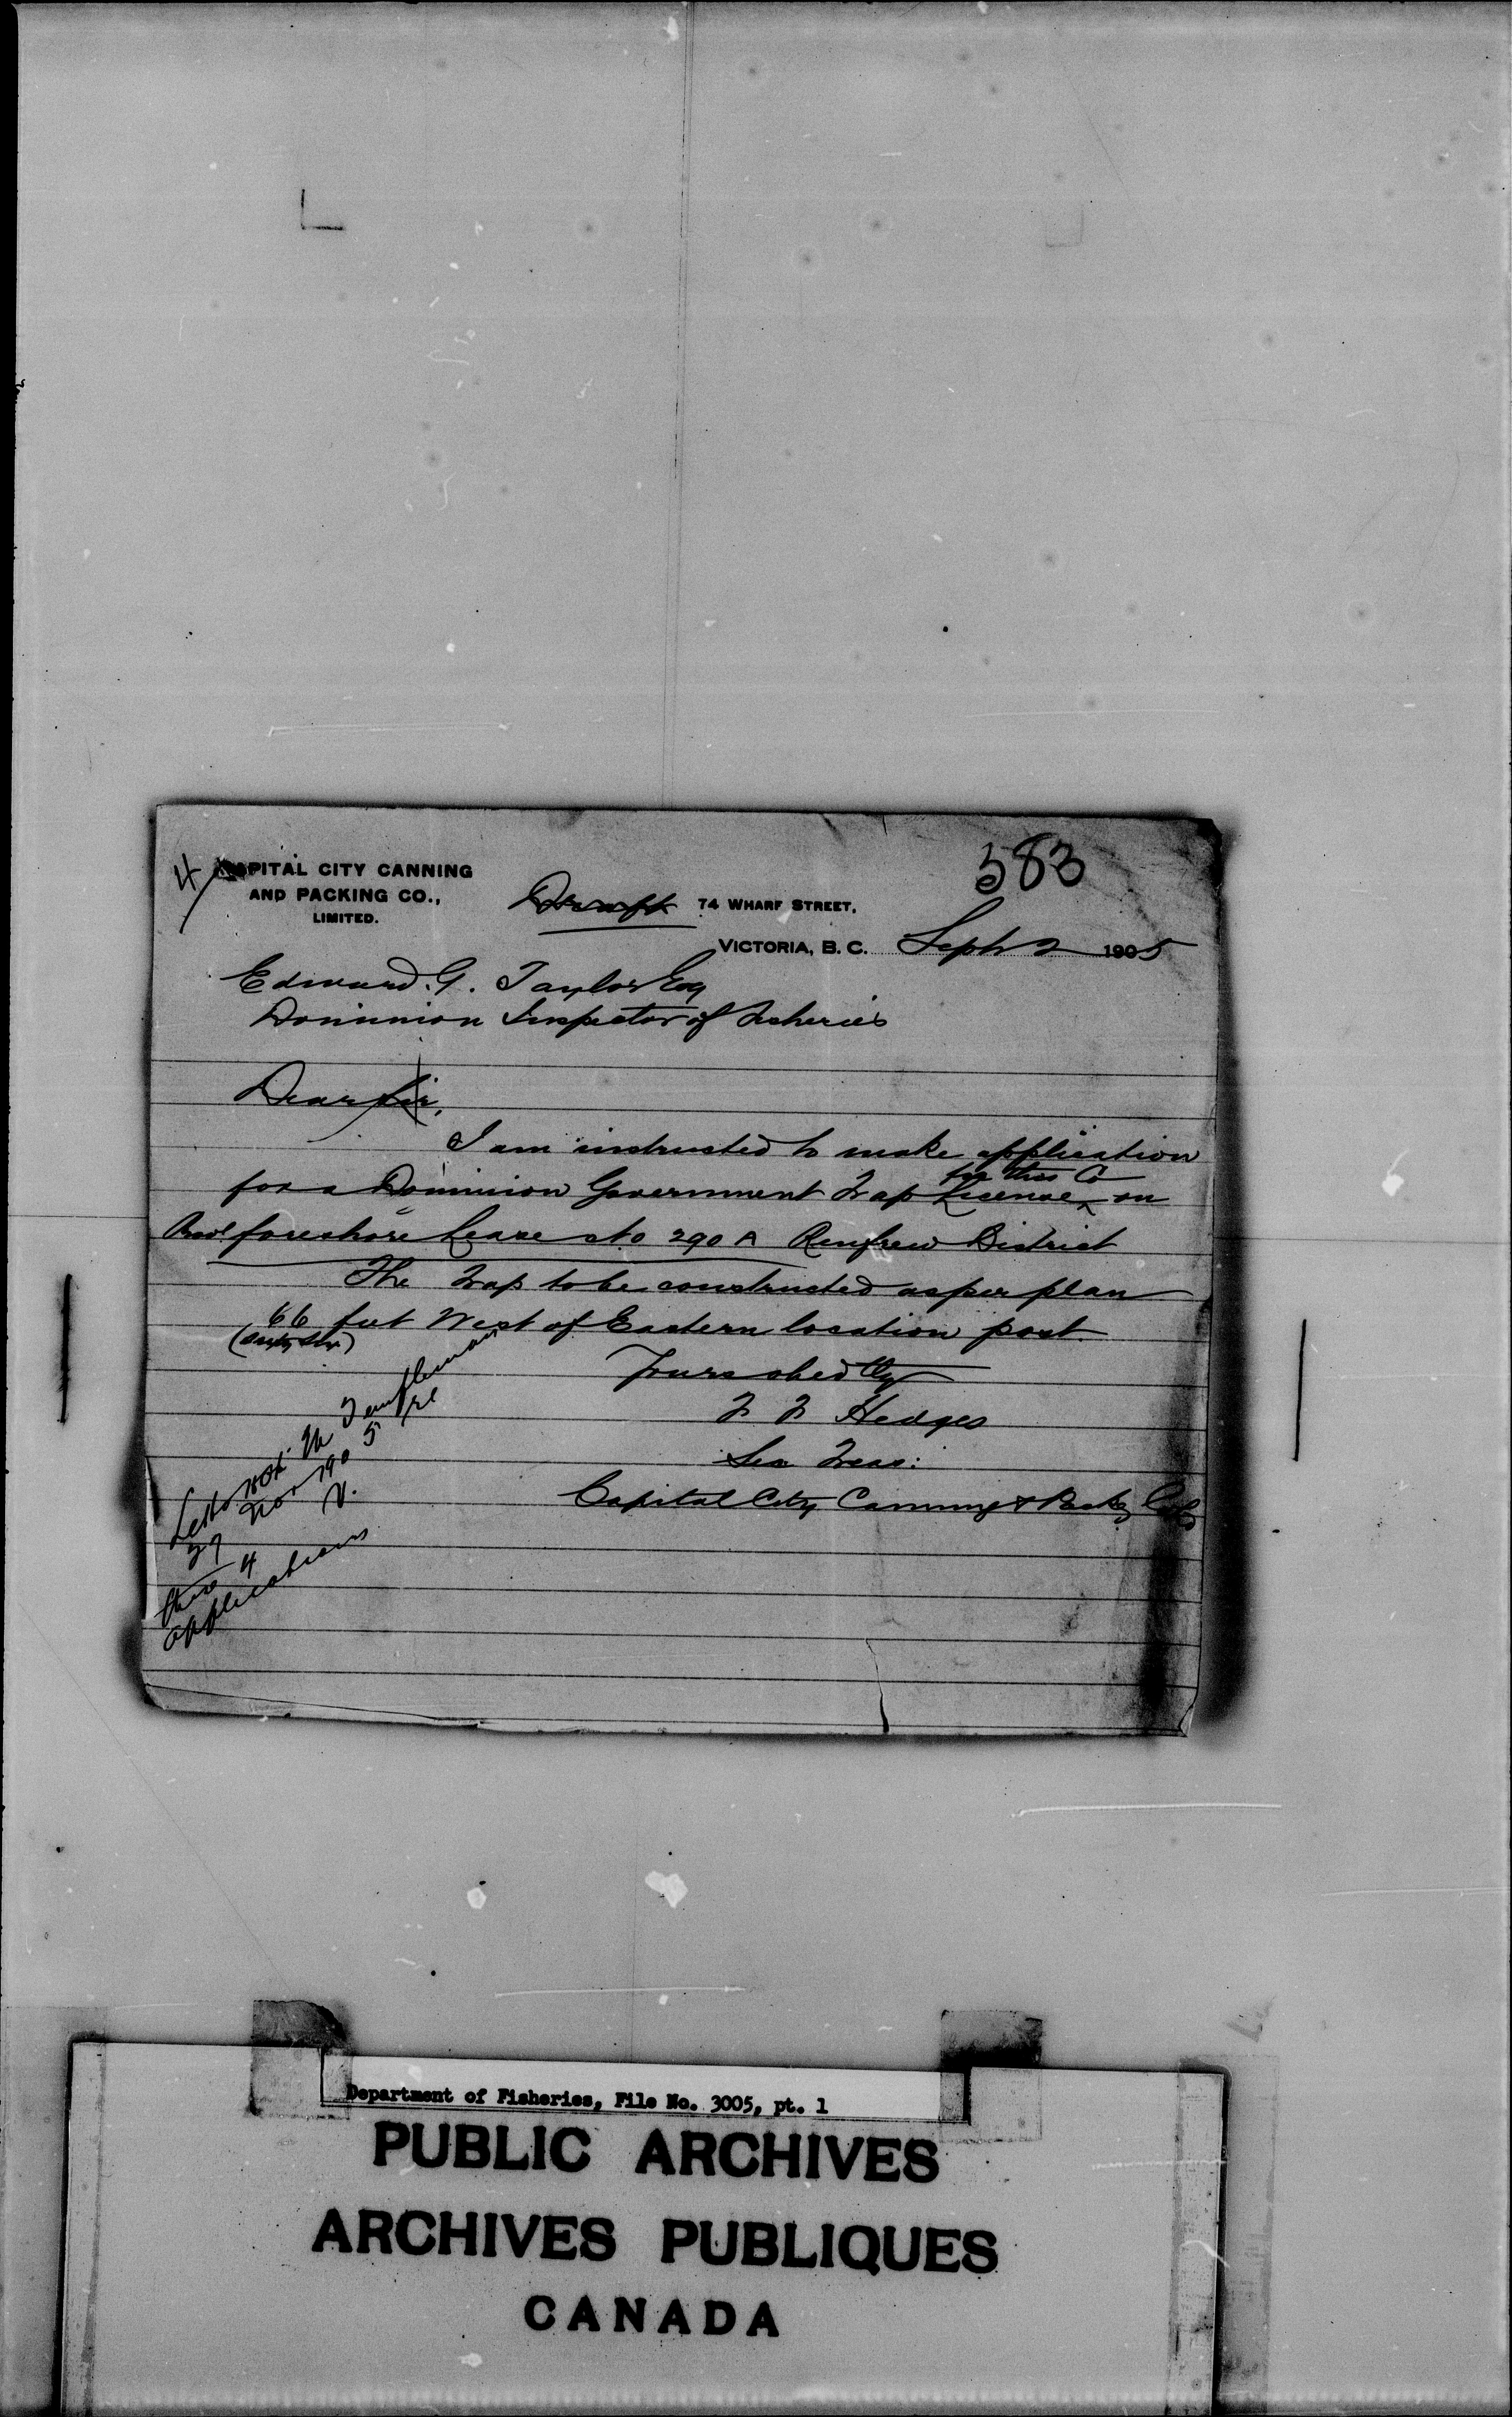 583
4
CAPITAL CITY CANNING
AND PACKING CO.,
LIMITED.
Draft
74 WHARF STREET,
VICTORIA, B. C. Sept 2 1905
Edward. G. Taylor Esq
Dominion Inspector of Fisheries
Dear Sir,
I am instructed to make application
for this Co
for a Dominion Government Trap License on
foreshore Lease No 290 A Renfrew District
The Trap to be constructed as per plan
66 feet West of Eastern location post
(Sixty Six)
Yours obedtly
F F Hedges
Sec Treas:
Capital City Canning & Packg Co Ld
Let to Hon. Templeman
29 Nov 1905 re
these 4
applications
Department of Fisheries, File No. 3005, pt. 1
PUBLIC ARCHIVES
ARCHIVES PUBLIQUES
CANADA